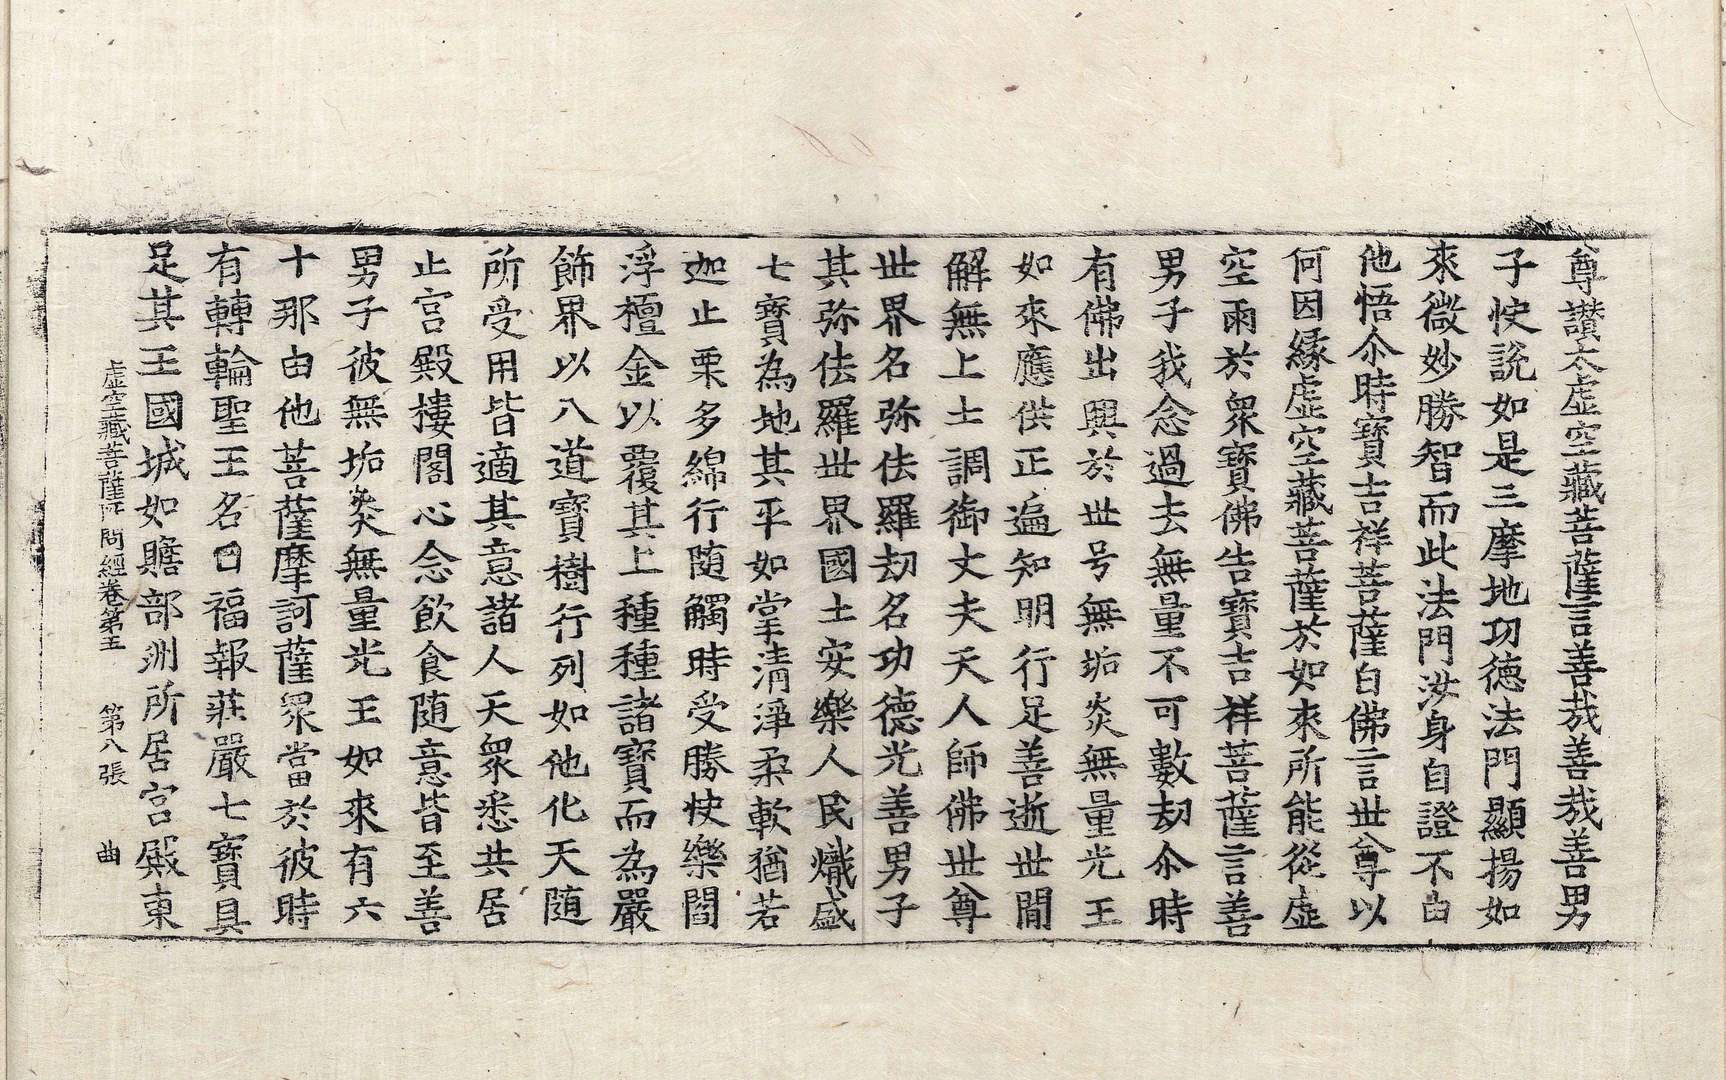 尊讚太虛空藏菩薩言善哉善哉善男
子快說如是三摩地功德法門顯揚如
來微妙勝智而此法門汝身自證不由
他悟尒時寶吉祥菩薩白佛言世尊以
何因緣虛空藏菩薩於如來所能從虛
空雨於眾寶佛告寶吉祥菩薩言善
男子我念過去無量不可數劫尒時
有佛出興於世号無垢炎無量光王
如來應供正遍知明行足善逝世間
解無上士調御丈夫天人師佛世尊
世界名弥佉羅劫名功德光善男子
其弥佉羅世界國土安樂人民熾盛
七寶為地其平如掌清淨柔軟猶若
迦止栗多綿行随觸時受勝快樂閻
浮檀金以覆其上種種諸寶而為嚴
飾界以八道寶樹行列如他化天随
所受用皆適其意諸人天眾悉共居
止宮殿樓閣心念飲食随意皆至善
男子彼無垢炎無量光王如來有六
十那由他菩薩摩訶薩眾當於彼時
有轉輪聖王名曰福報莊嚴七寶具
足其王國城如贍部洲所居宮殿東
虛空藏菩薩所問經卷第五 第八張 曲